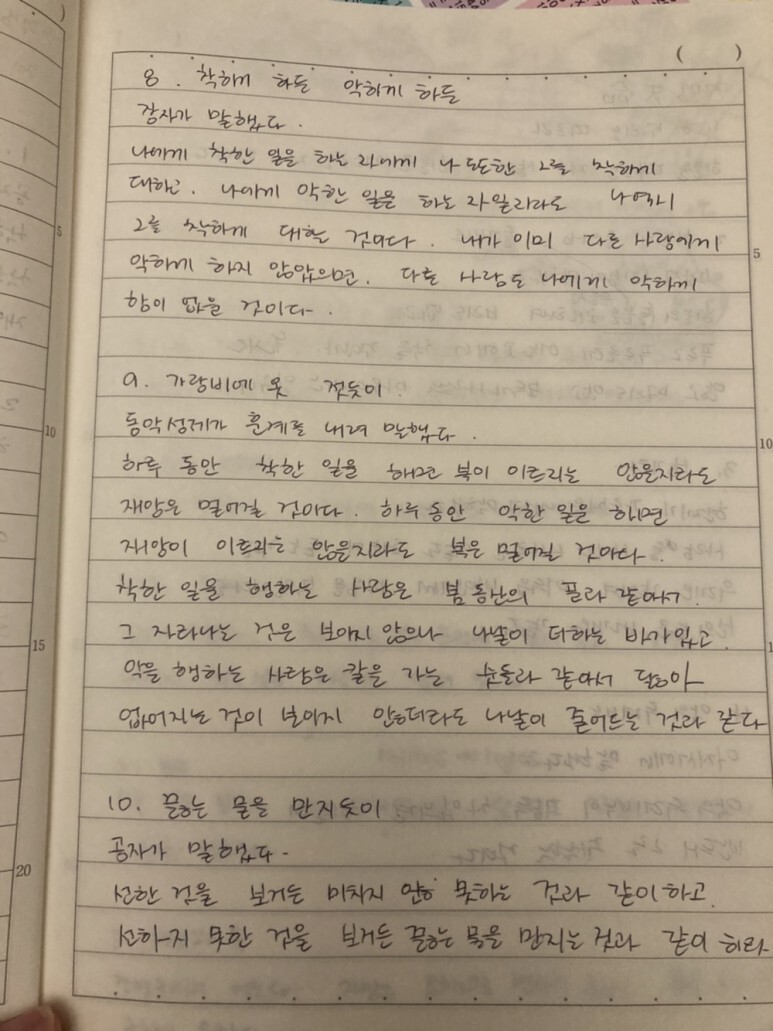 8. 착하게 하든 악하게 하든
장자가 말했다.
나에게 착한 일을 하는 자에게 나 또한 그를 착하게
대하고. 나에게 악한 일을 하는 자일지라도 나 역시
그를 착하게 대할 것이다. 내가 이미 다른 사람에게
악하게 하지 않았으면. 다른 사람도 나에게 악하게
함이 없을 것이다.
9. 가랑비에 옷 젖듯이.
동악성제가 훈계를 내려 말했다.
하루 동안 착한 일을 해도 복이 이르지는 않을지라도
재앙은 멀어질 것이다. 하루 동안 악한 일을 하면
재앙이 이르지는 않을지라도 복은 멀어질 것이다.
착한 일을 행하는 사람은 봄 동산의 풀과 같아서.
그 자라나는 것은 보이지 않으나 나날이 더하는 바가 있고.
악을 행하는 사람은 칼을 가는 숫돌과 같아서 닳아
없어지는 것이 보이지 않더라도 나날이 줄어드는 것과 같다
10. 끓는 물을 만지듯이
공자가 말했다.
선한 것을 보거든 미치지 않 못하는 것과 같이 하고.
선하지 못한 것을 보거든 끓는 물을 만지는 것과 같이 하라
5
10
15
20
5
10